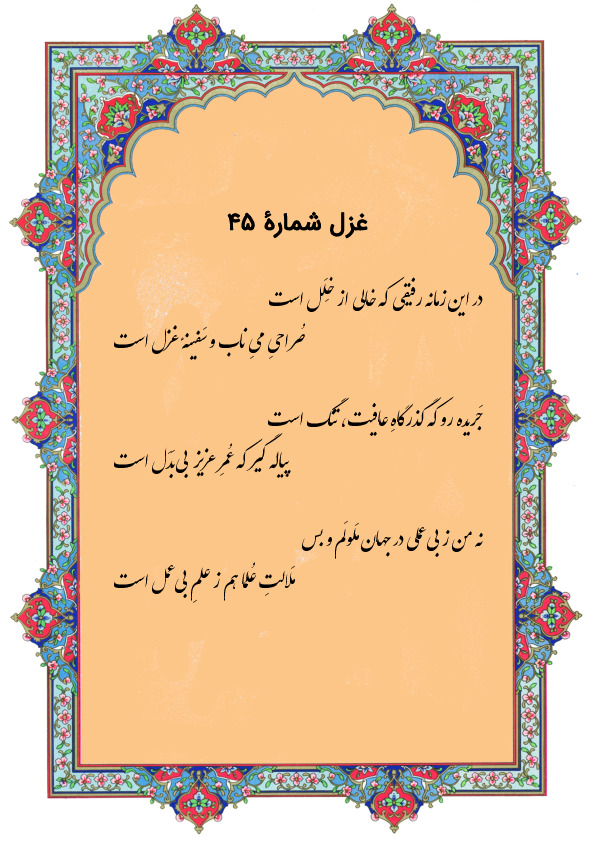 غزل شمارهٔ ۴۵
در این زمانه رفیقی که خالی از خِلَل است
صُراحیِ میِ ناب و سَفینهٔ غزل است
جَریده رو که گذرگاهِ عافیت، تنگ است
پیاله گیر که عُمرِ عزیز بی‌بَدَل است
نه من ز بی عملی در جهان مَلولَم و بس
مَلالتِ عُلما هم ز علمِ بی‌عمل است